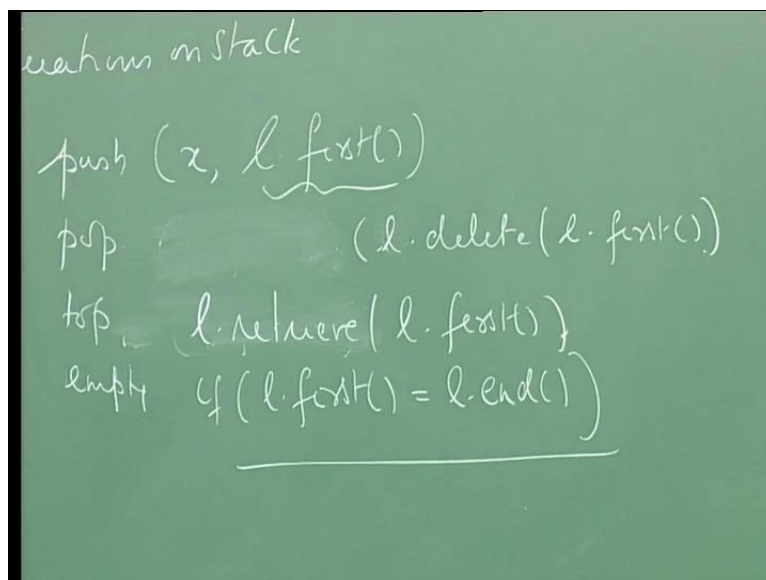 erations on Stack
push (x, l.first())
pop (l.delete(l.first())
top l.retrieve(l.first())
empty if (l.first() = l.end())